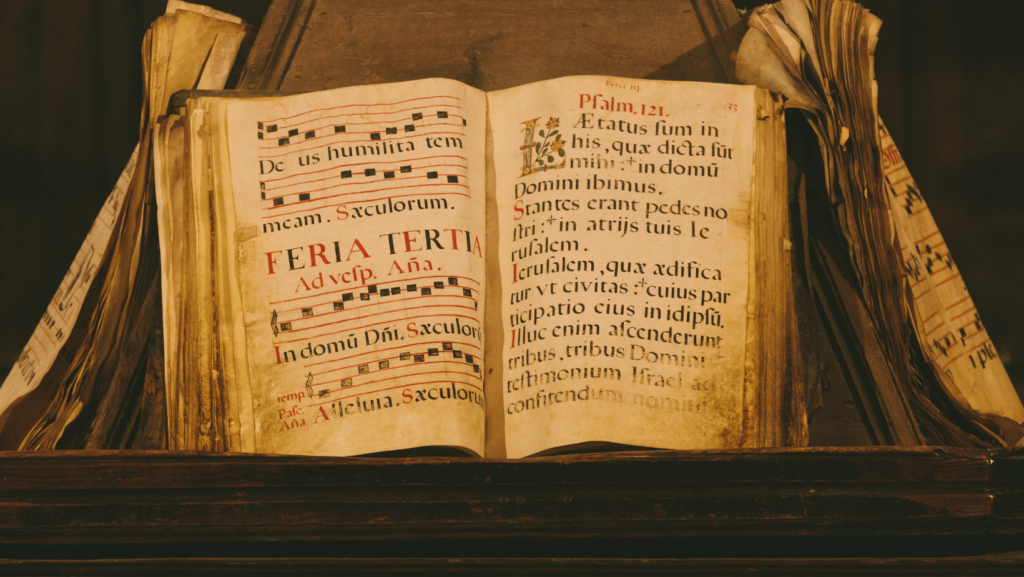 De us humilita tem
meam. Sæculorum.
FERIA TERTIA
Ad veſp. Aña.
In domũ Dñi. Sæculorũ
temp.
Paſc.
Aña. Alleluia. Sæculorum
Feria III.
Pſalm. 121. 93
LÆtatus ſum in
his, quæ dicta ſũt
mihi :+ in domũ
Domini ibimus.
Stantes erant pedes no
ſtri :+ in atrijs tuis Ie
ruſalem.
Ieruſalem, quæ ædifica
tur vt civitas :+ cuius par
ticipatio eius in idipſũ.
Illuc enim aſcenderunt
tribus, tribus Domini
teſtimonium Iſrael ad
confitendum nomini